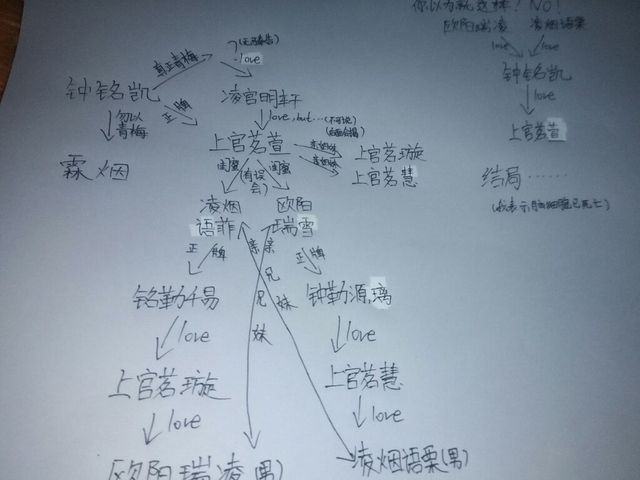 你以为就这样？NO！
欧阳瑞凌 凌烟语栗
love love
钟铭凯
love
上官茗萱
结局……
(我表示脑细胞已死亡)
真正青梅
love
钟铭凯
凌宫明轩
正牌
love, but…
(不可说)
上官茗萱
霖烟
亲姐妹
上官茗璇
亲姐妹
上官茗慧
闺蜜
(有误会)
闺蜜
凌烟语菲
欧阳瑞雪
正牌
亲兄妹
亲兄妹
正牌
铭勤千易
钟勤源璃
love
love
上官茗璇
上官茗慧
love
love
欧阳瑞凌(男)
凌烟语栗(男)